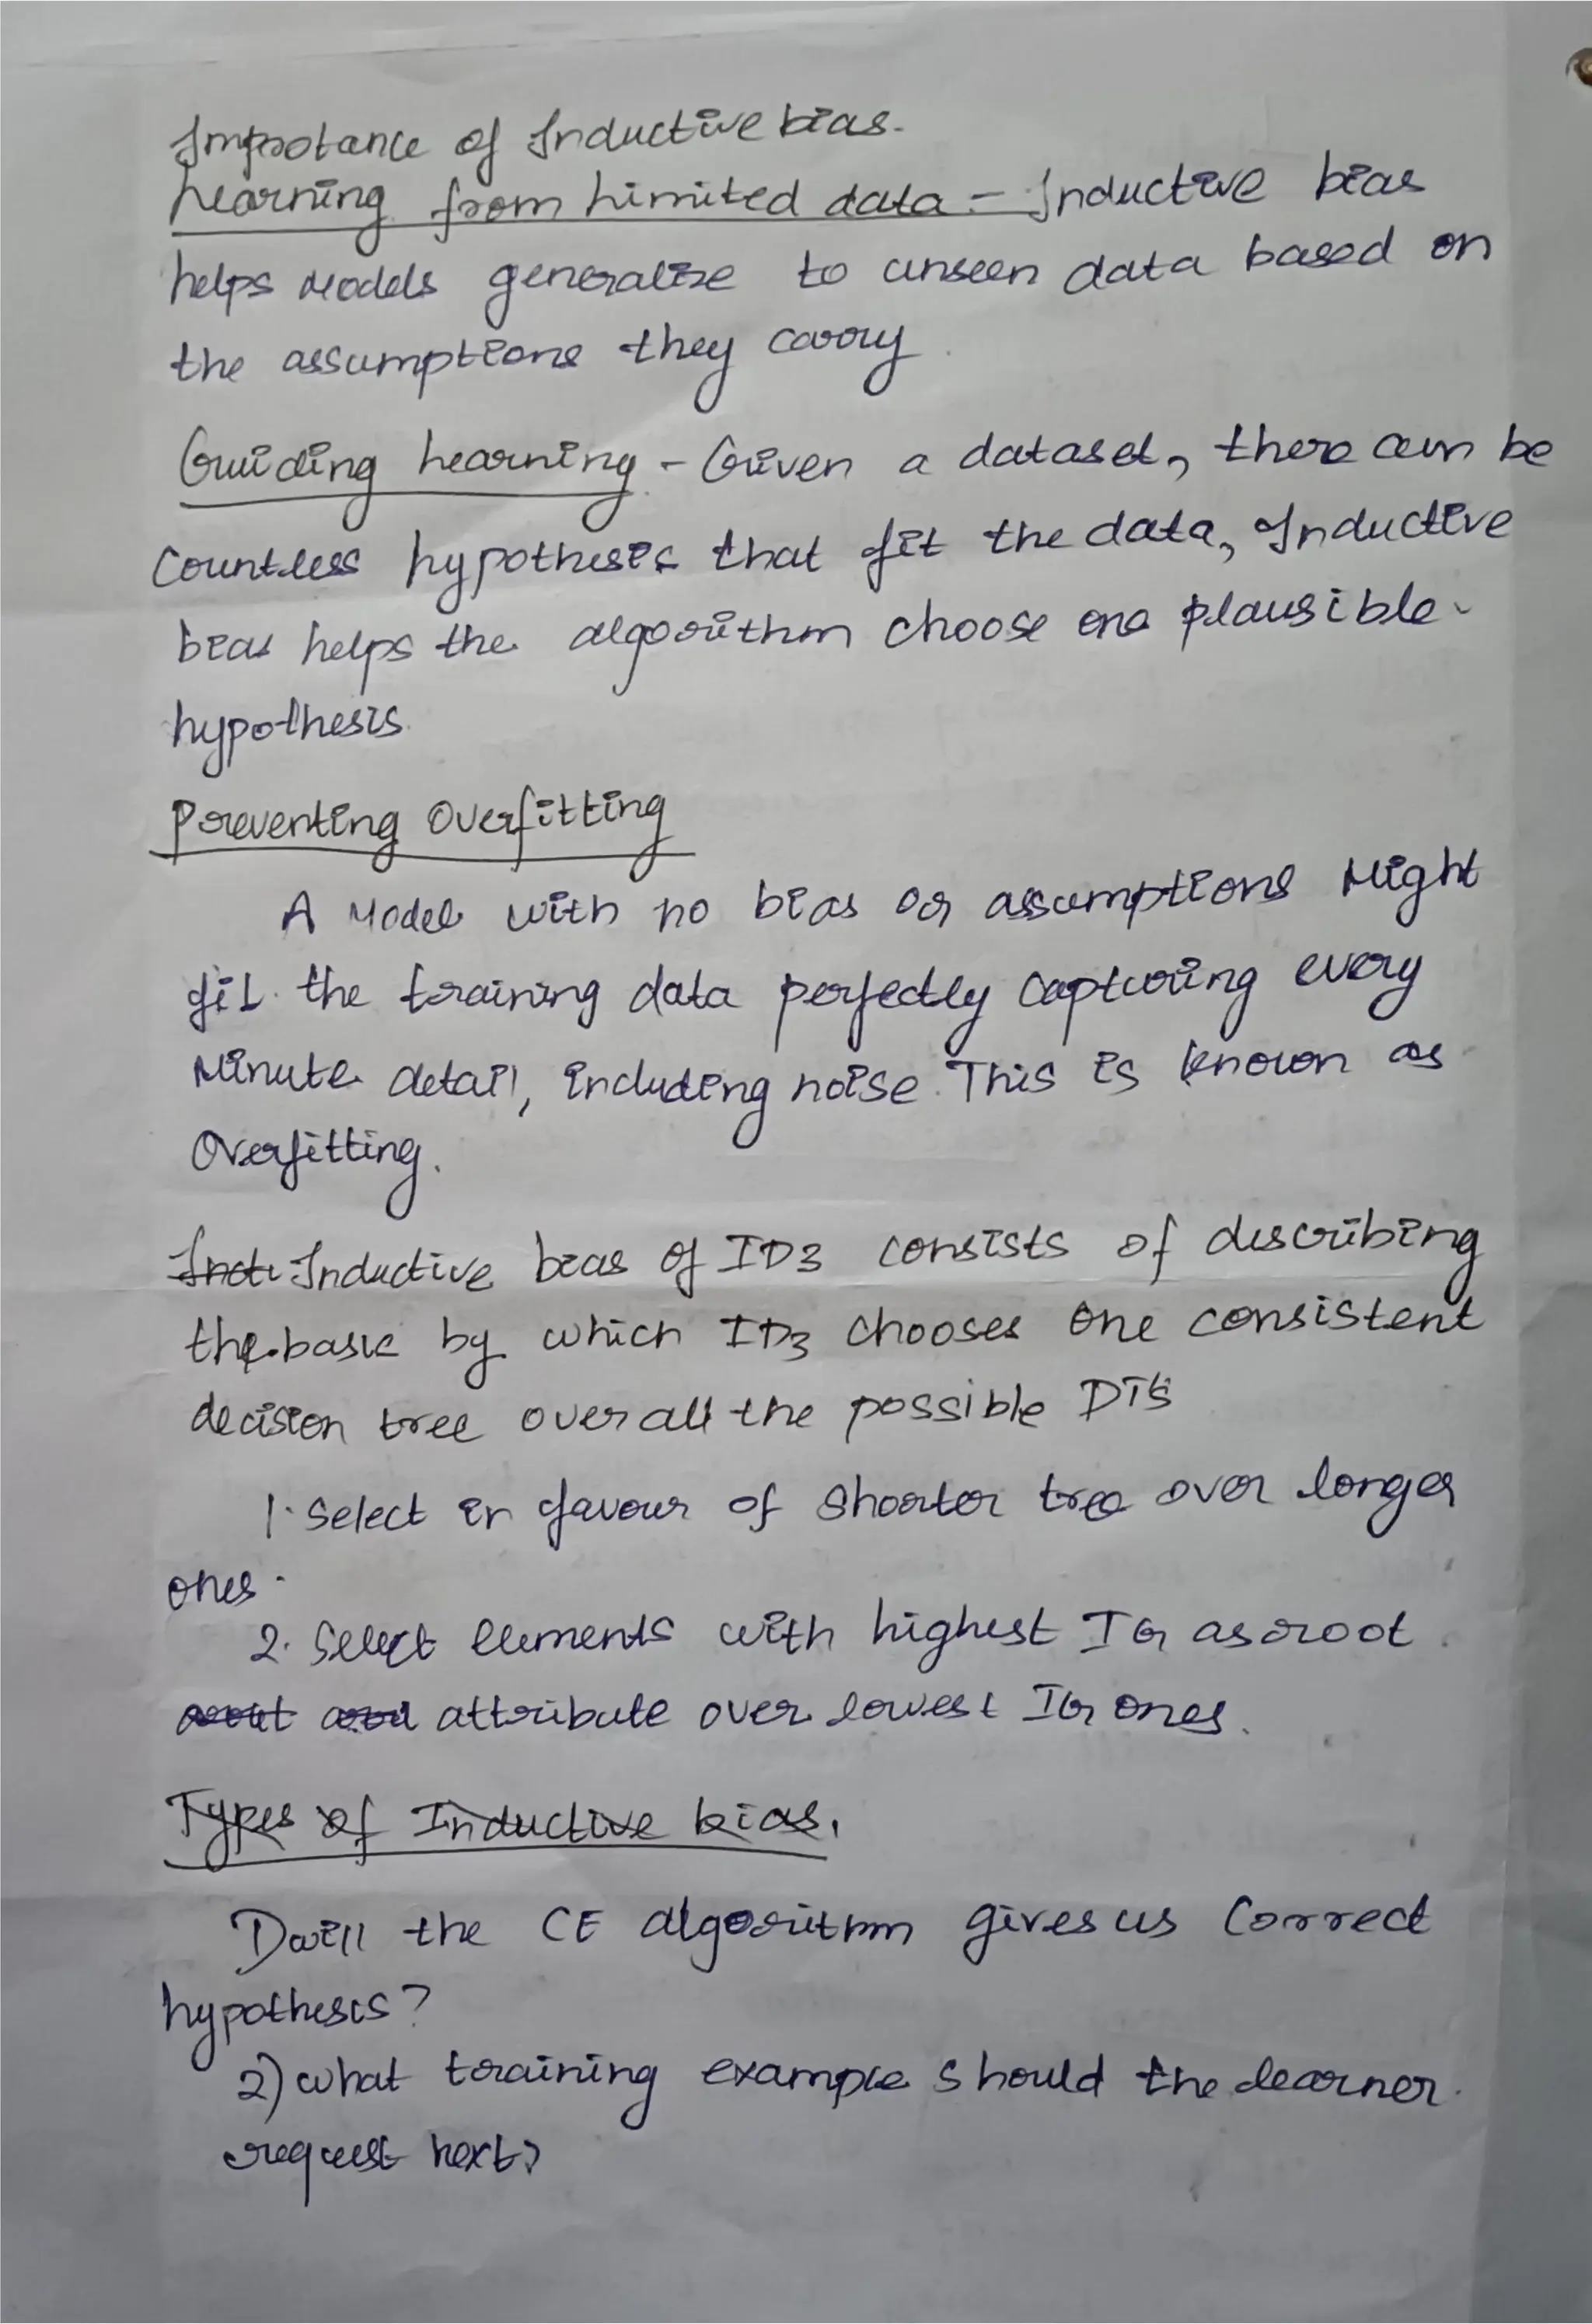 Impotance of Inductive bias.
Learning from Limited data - Inductive bias
helps Models generalize to unseen data based on
the assumptions they carry
Guiding Learning - Given a dataset, there can be
Countless hypothesis that fit the data, Inductive
bias helps the algorithm choose one plausible
hypothesis.
Preventing Overfitting
A Model with no bias or assumptions Might
fit the training data perfectly capturing every
Minute detail, including noise. This is known as
Overfitting.
Indi Inductive bias of ID3 consists of describing
the basis by which ID3 chooses one consistent
decision tree over all the possible DT's
1. Select in favour of Shorter tree over longer
ones.
2. Select elements with highest IG as root
attribute over lowest IG ones.
Types of Inductive bias.
1) will the CE algorithm gives us Correct
hypothesis?
2) what training example should the learner
request next?